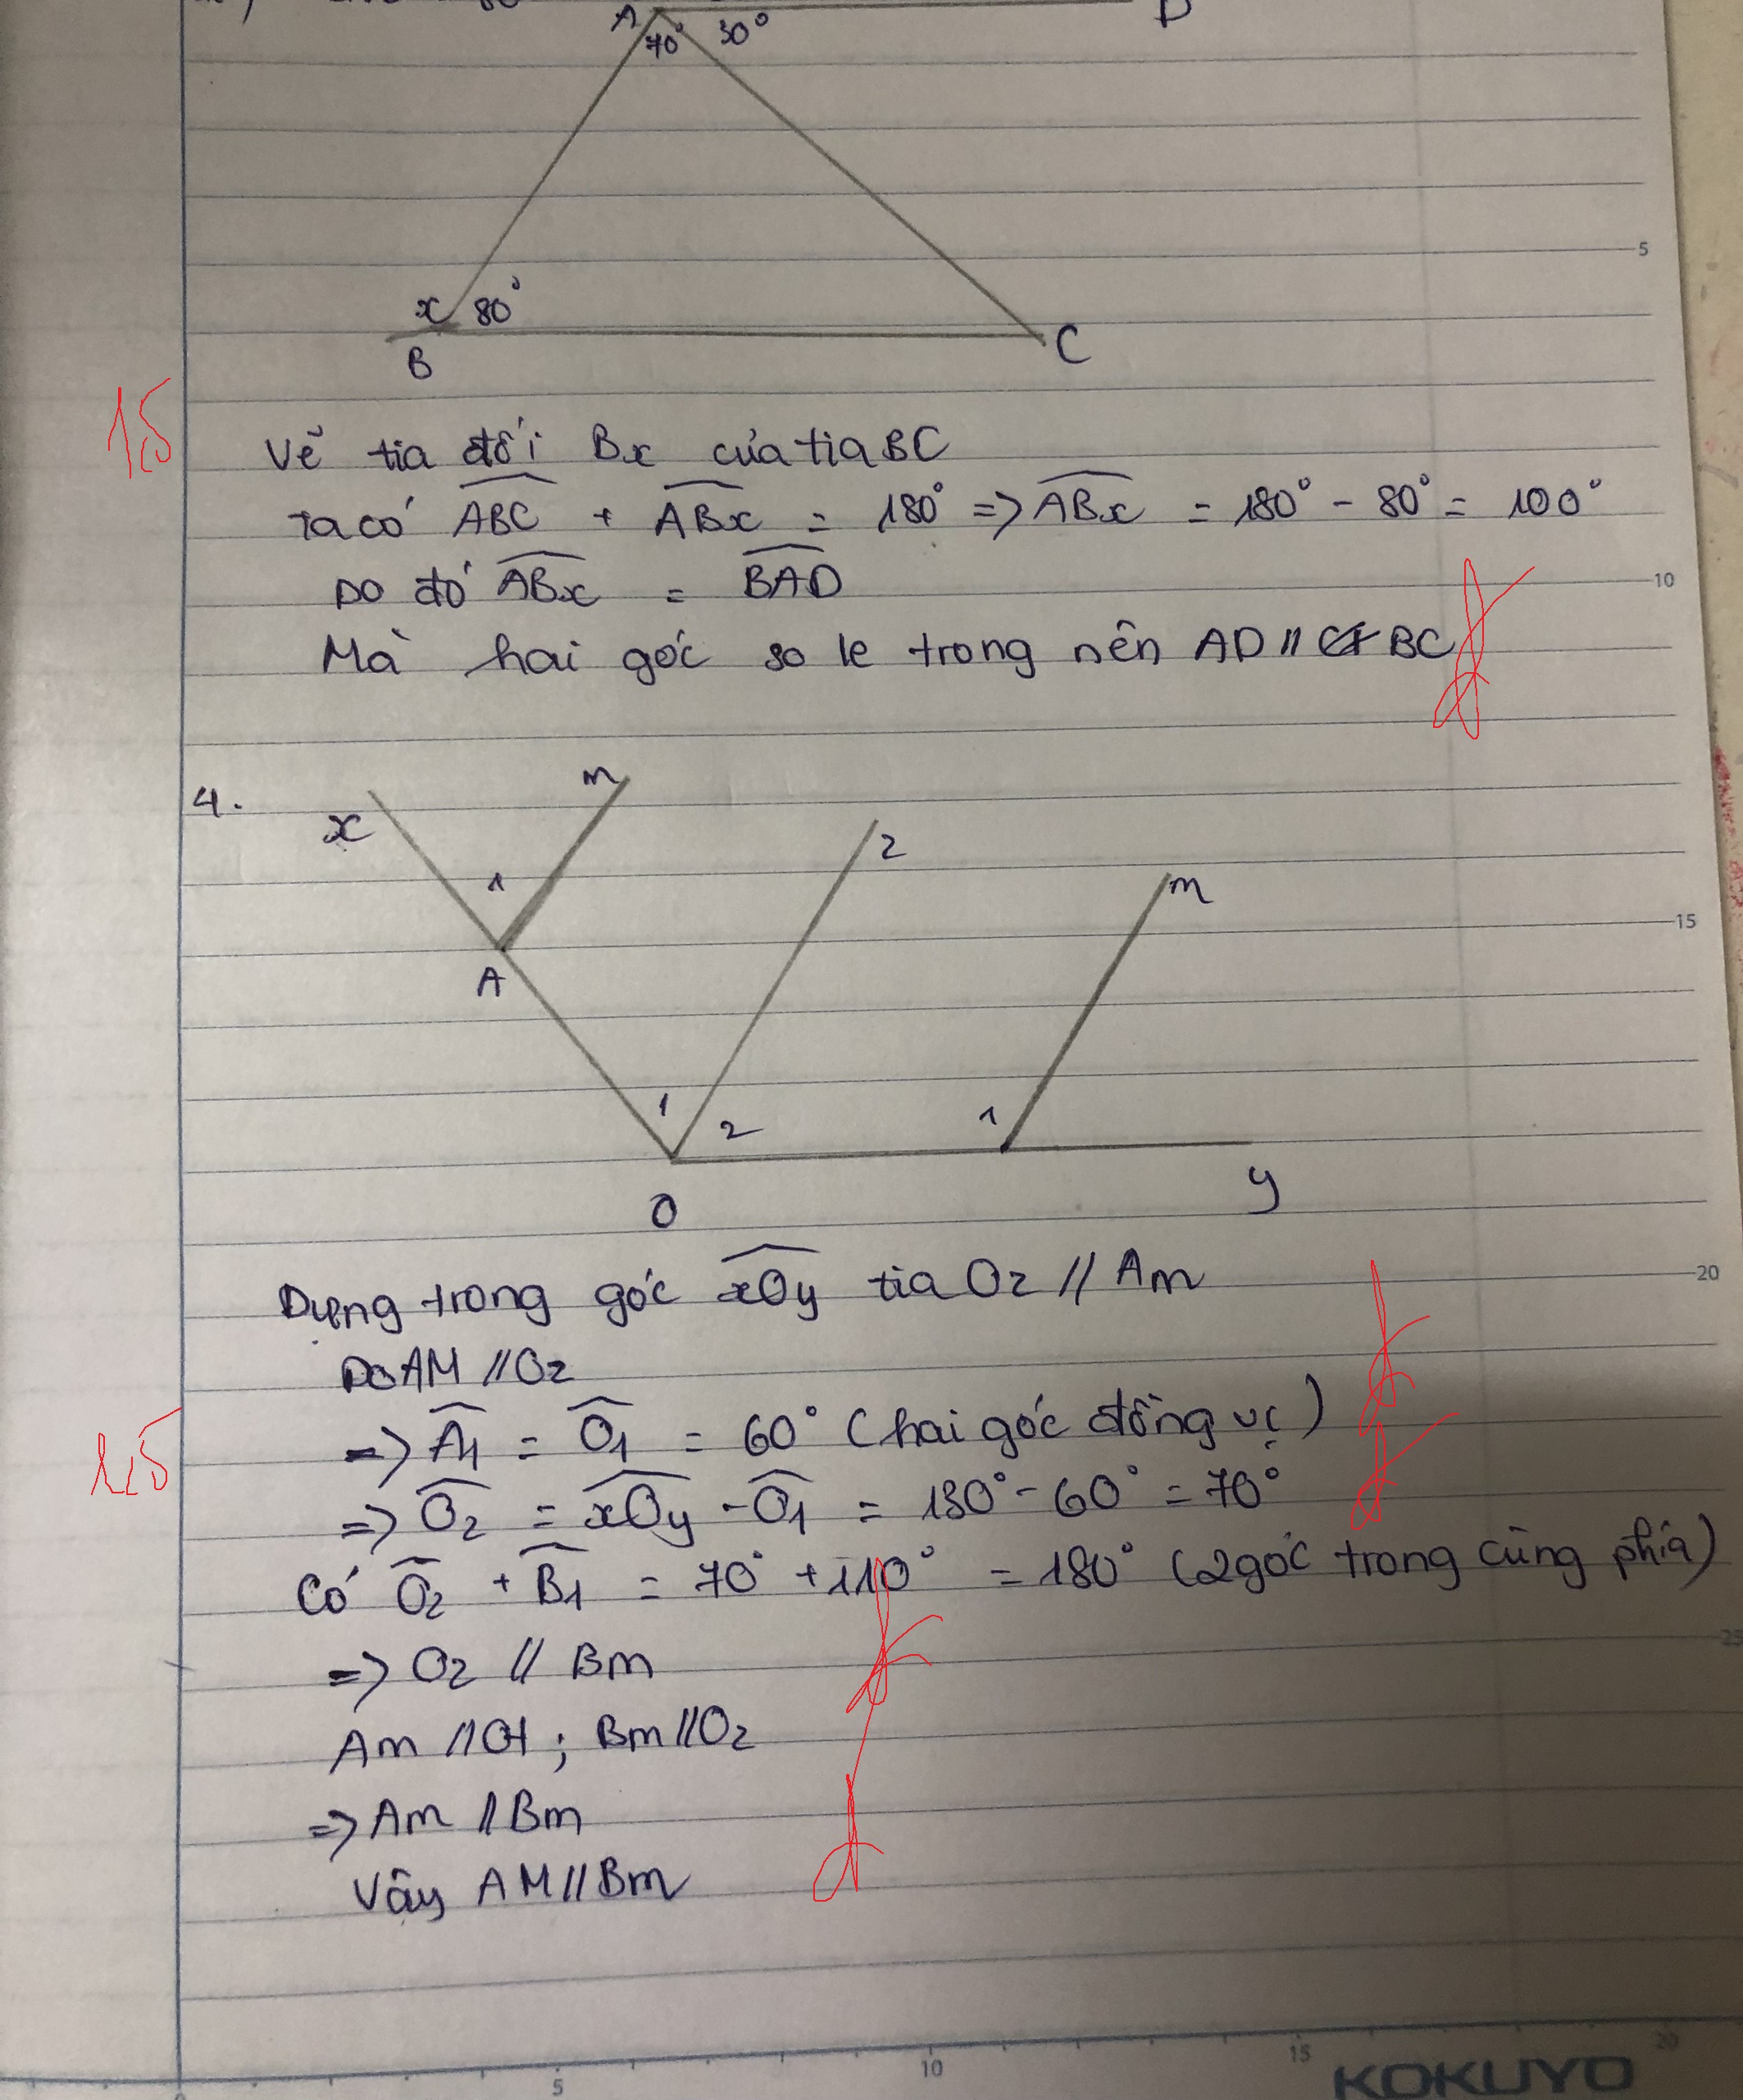 A D
70° 30°
x 80°
B C
5
1,5
Vẽ tia đối Bx của tia BC
Ta có ABC + ABx = 180° => ABx = 180° - 80° = 100°
Do đó ABx = BAD
10
Mà hai góc so le trong nên AD // BC
4.
x 1 m
A
z
m
15
1 2 1
O y
Dựng trong góc xOy tia Oz // Am
20
Do AM // Oz
=> A1 = O1 = 60° (hai góc đồng vị)
1,5
=> O2 = xOy - O1 = 130° - 60° = 70°
Có O2 + B1 = 70° + 110° = 180° (2 góc trong cùng phía)
25
=> Oz // Bm
Am // Ot ; Bm // Oz
=> Am // Bm
Vậy AM // Bm
5 10 15 20
KOKUYO